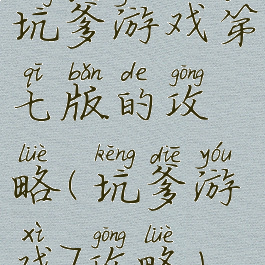 坑爹游戏第
qī bǎn de gōng
七版的攻
lüè kēng diē yóu
略(坑爹游
xì gōng lüè
戏7攻略)